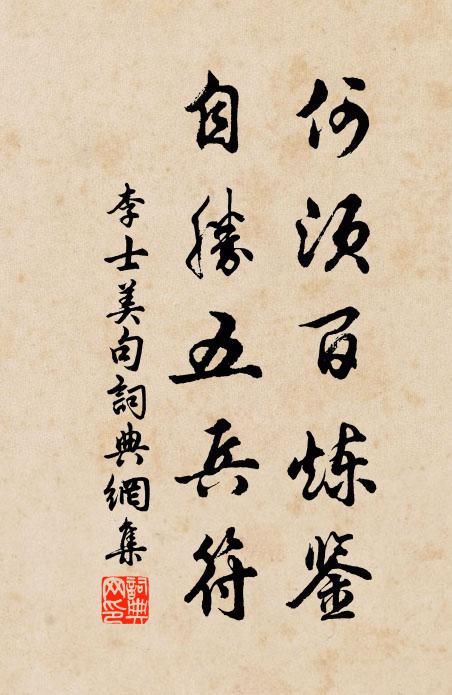 何須百炼鉴
自勝五兵符
李士美句詞典網集
詞典
网印